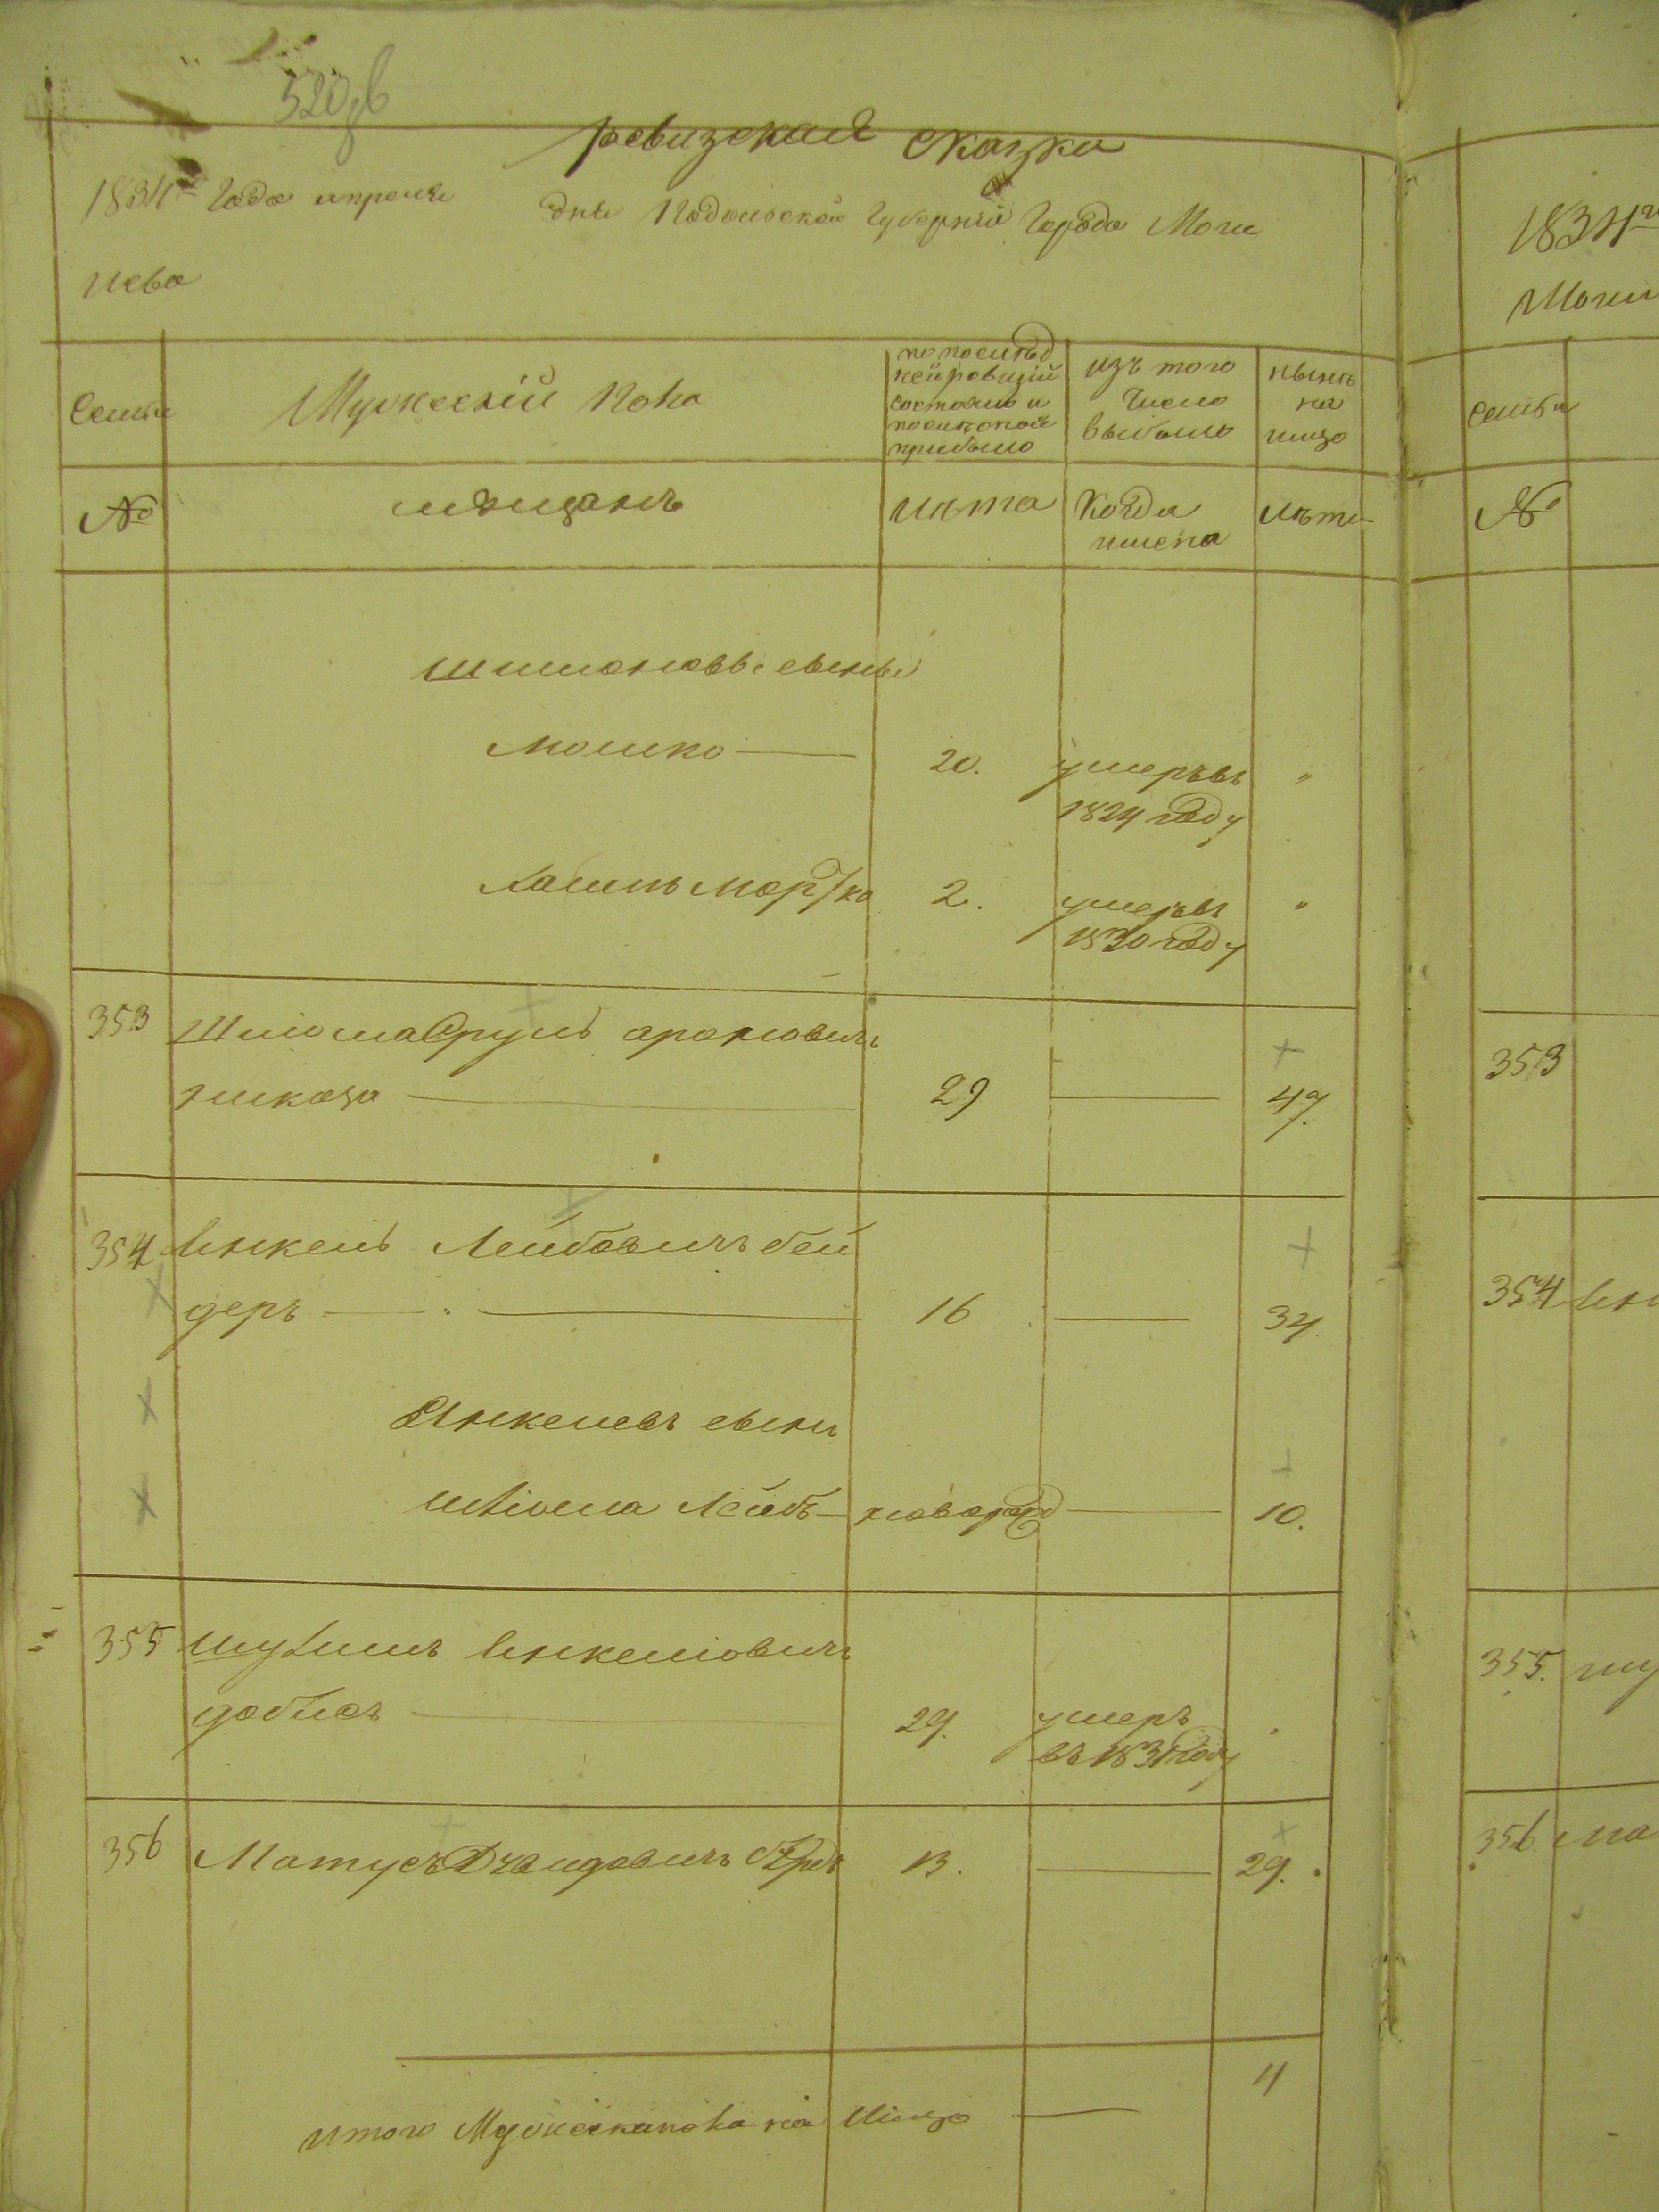 520об
ревизская сказка
1834го Года апреля дня Подольской Губернiи Города Моги
лева
Семьи
Мужескiй полъ
по послѣд
ней ревизiй
состояло и
послѣ оной
прибыло
изъ того
число
выбыло
нынѣ
на
лицо
№
мѣщанъ
лѣта
Когда
имено
лѣта
Шлиомовы сыны
Мошко — 20. умеръ въ "
1824 году
Хаимъ Мортко 2. умеръ въ "
1830 году
353 Шлиома Срулъ ароновичъ
29 — 47.
354 Янкель Лейбовичъ бей
деръ — 16 — 34.
Янкелевъ сынъ
Шлiома Лейбъ — новорожд — 10.
355 Шулимъ Янкелiовичъ
29. умеръ .
въ 1831 году
356 Матусъ 13. — 29.
итого Мужеска пола на Лицо — 4
1834го
Моги
семьи
№
353
354 Янк
355. шу
356. Ма